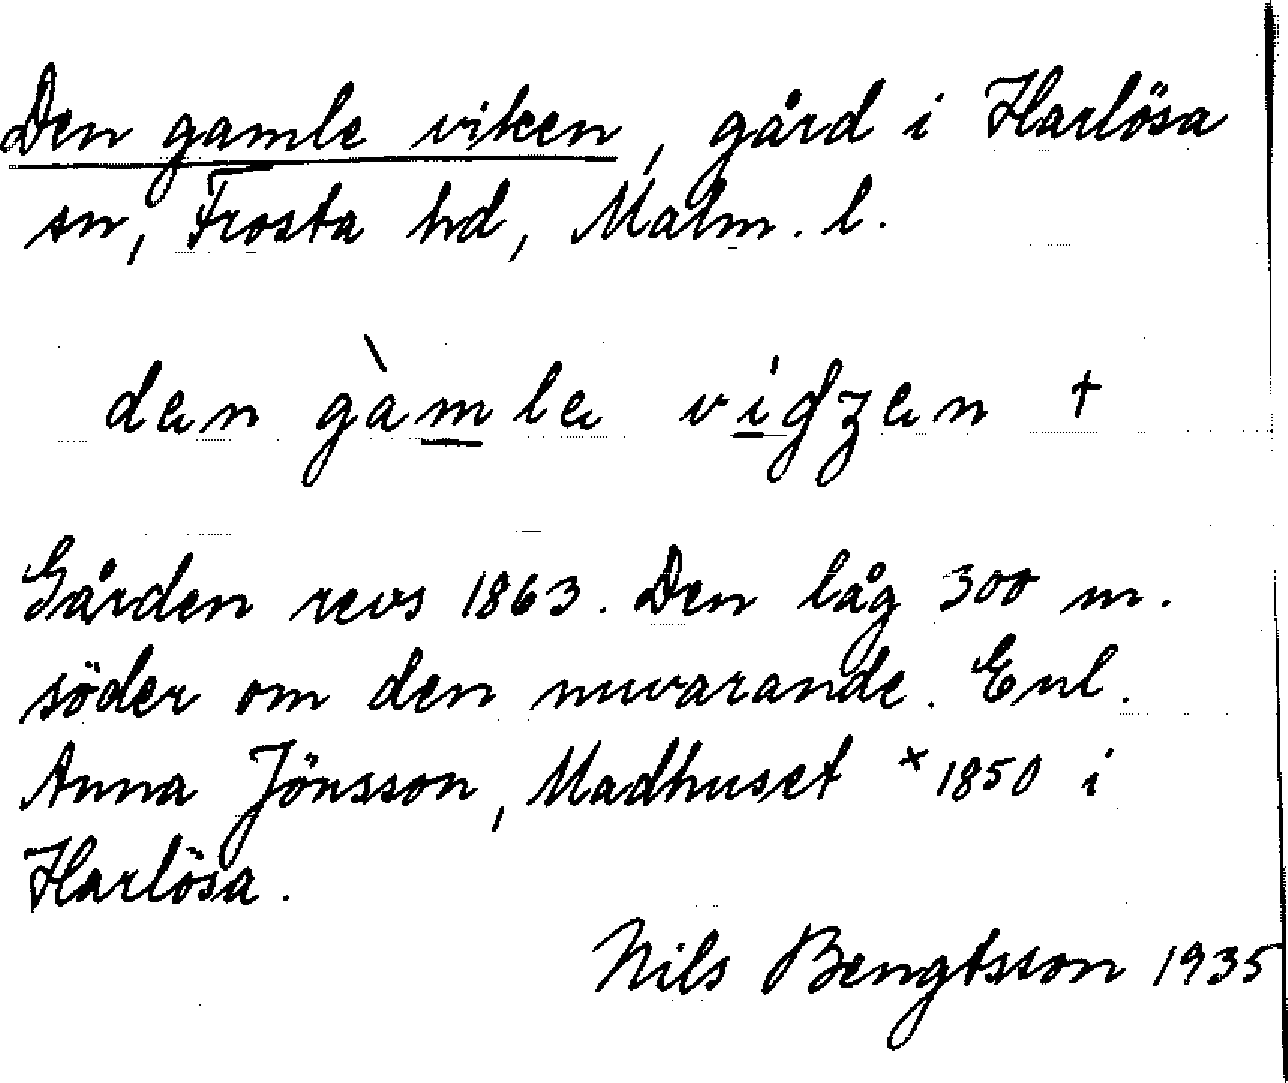 Den gamle viken, gård i Harlösa
sn, Frosta hd, Malm. l.
den gàmle vígʒen †
Gården revs 1863. Den låg 300 m.
söder om den nuvarande. Enl.
Anna Jönsson, Madhuset * 1850 i
Harlösa.
Nils Bengtsson 1935